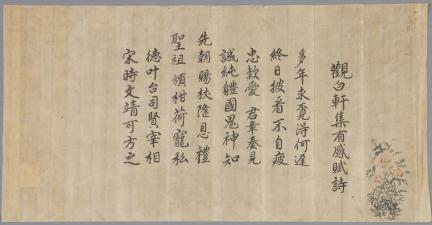 觀白軒集有感賦詩
多年求覓得何遲
終日披看不自疲
忠款愛君章奏見
誠純體國鬼神知
先朝賜杖隆恩禮
聖祖頒柑荷寵私
德叶台司賢宰相
宋時文靖可方之